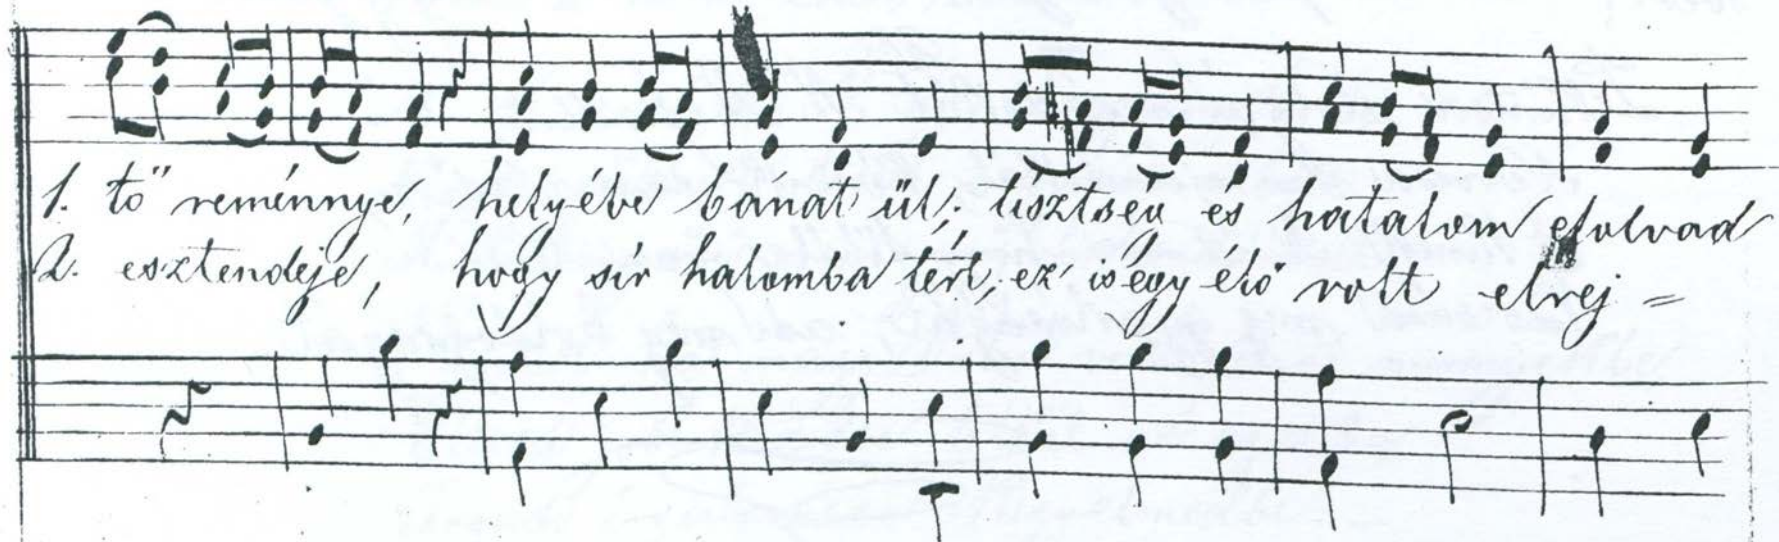 1. tő reménnye, helyébe bánat ül; tisztség és hatalom elolvad
2. esztendeje, hogy sír halomba tért, ez is egy élő volt elrej =